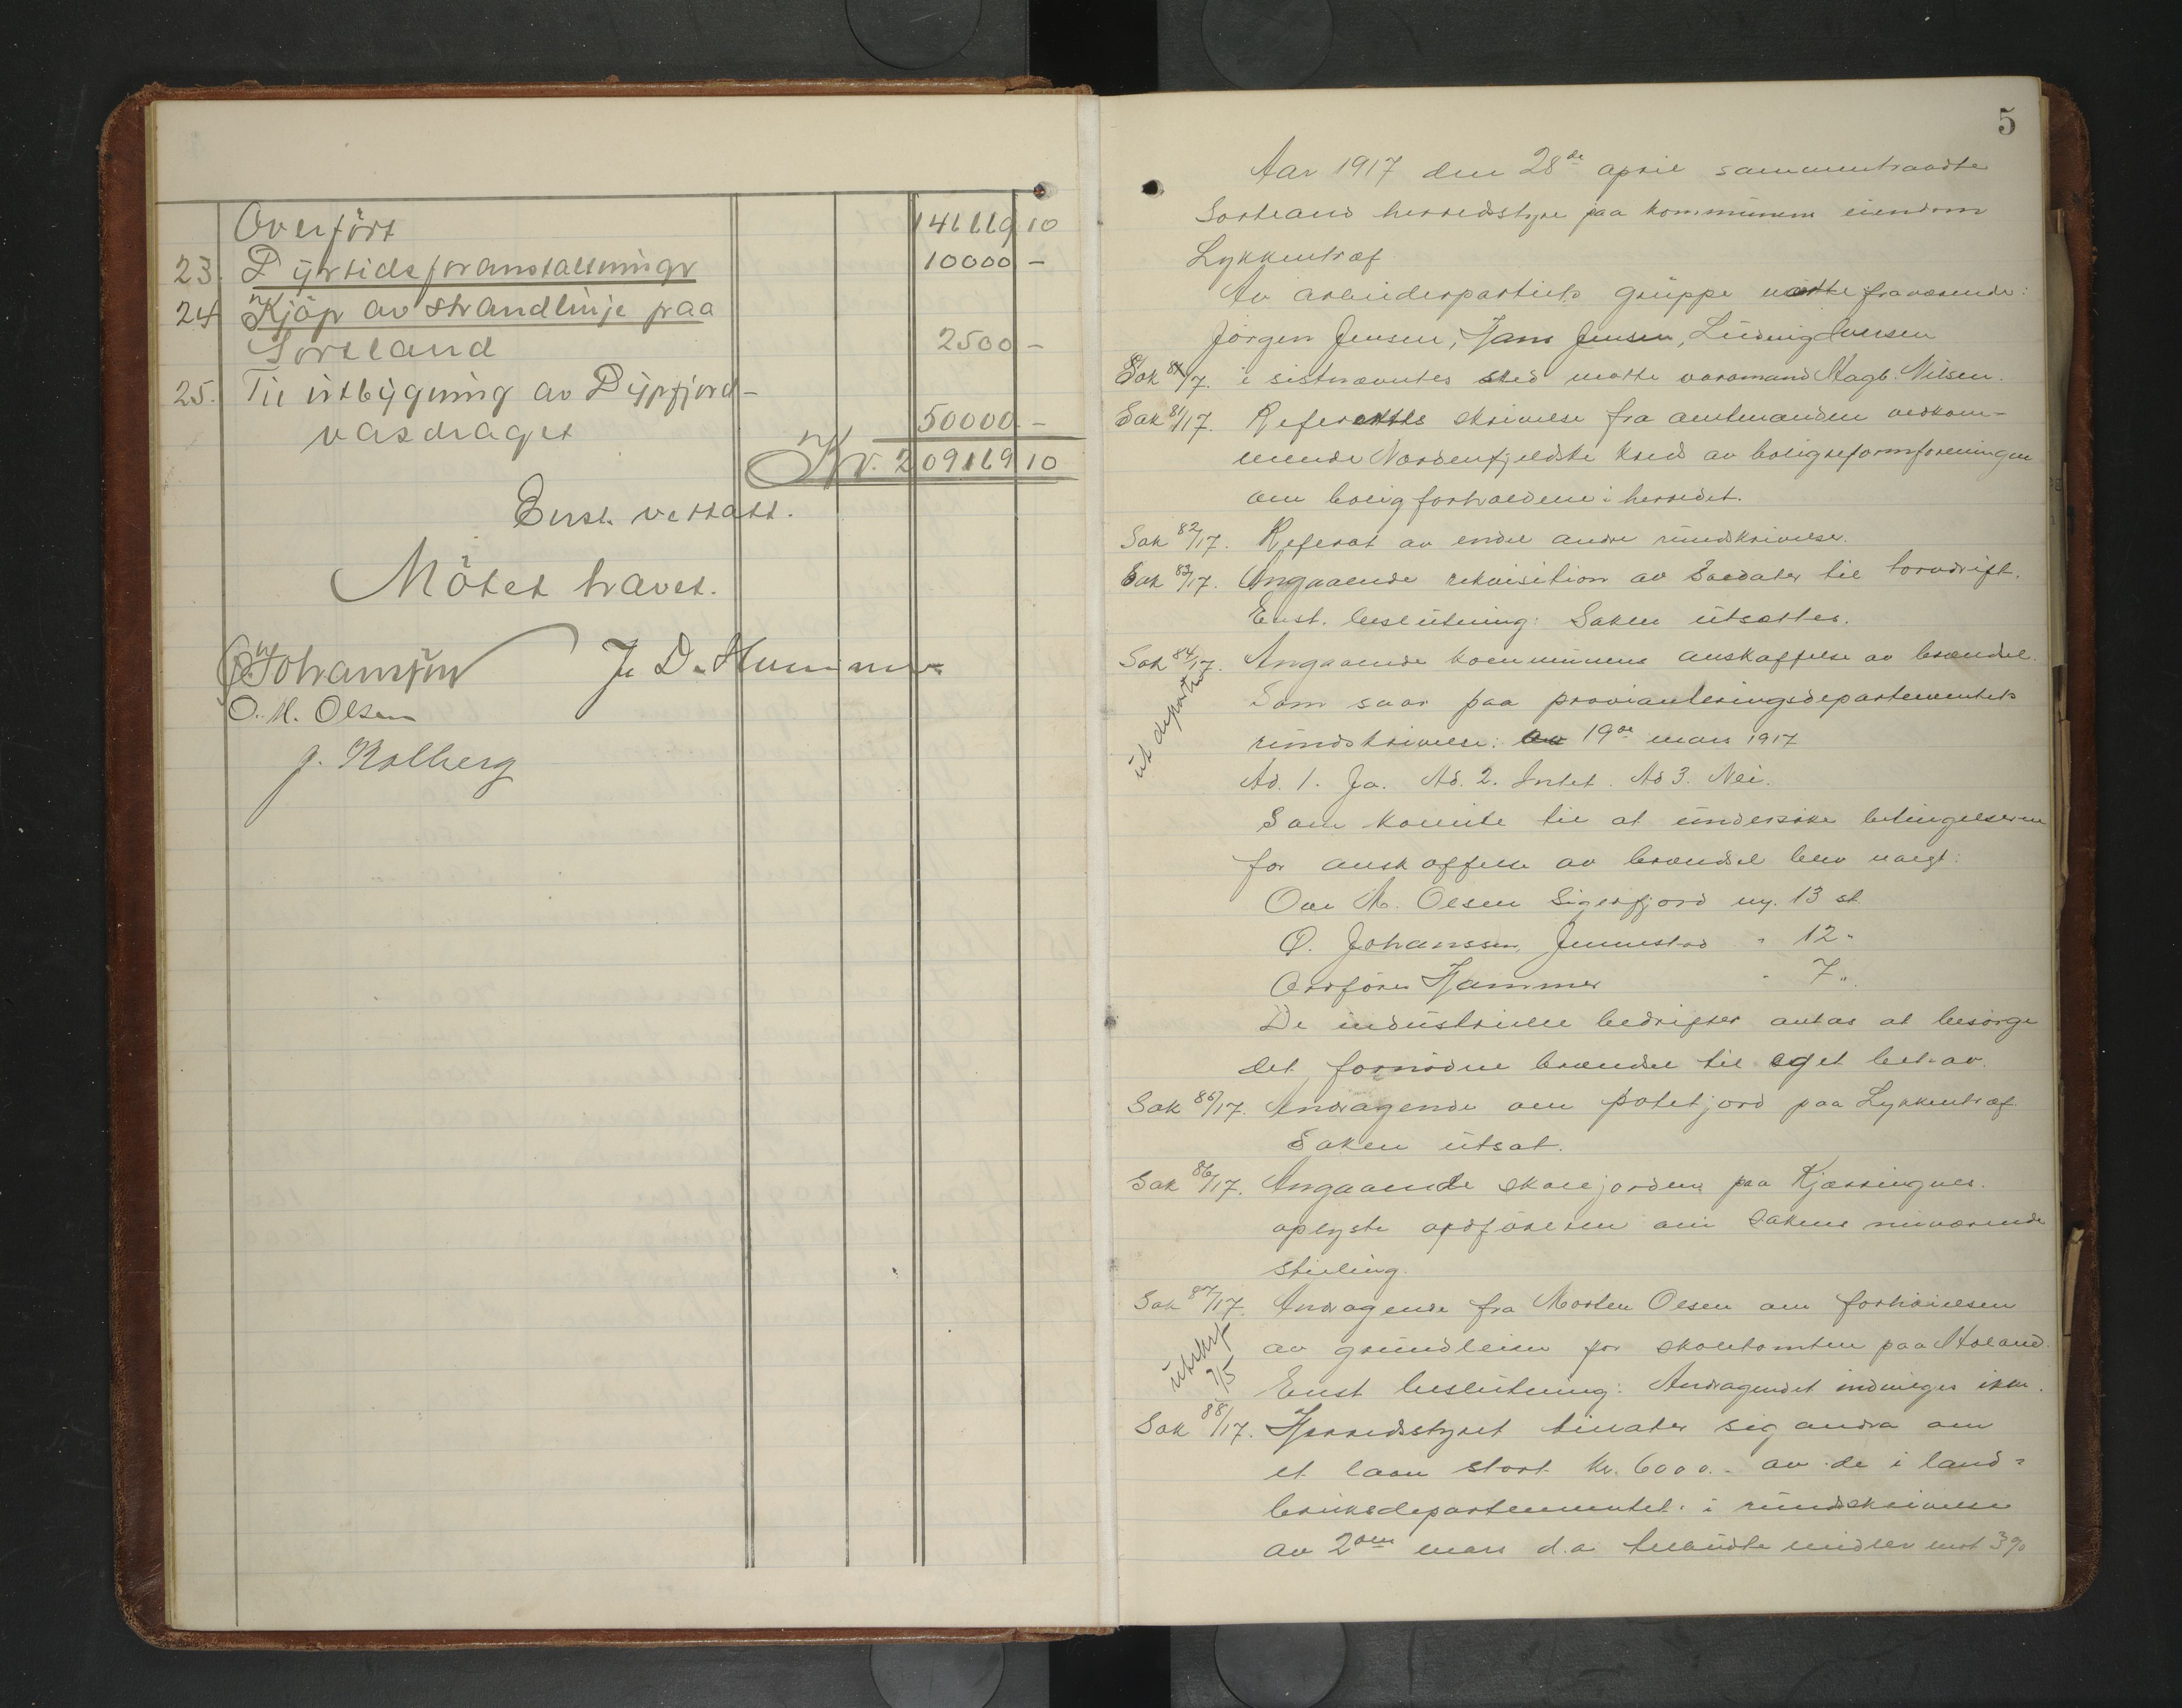 Overført 10
23. Dyrtidsforanstaltninger 10000 –
24 Kjøp av strandlinje paa
Sortland 2500 –
25. Til utbygning av Dypfjord-
vasdraget 50000 –
Kr. 209169 10
Enst. vettatt.
Møtet hævet.
O. Johanssen J. D. Hammer
O. M. Olsen
J. Holberg
5
Aar 1917 den 28de april sammentraadte
Sortland herredsstyre paa kommunens eiendom
Lykkentræf
Av arbeiderpartiets gruppe møtte fraværende:
Jørgen Jensen, Hans Jensen, Ludvig Iversen
Sak /17. i sistnævntes sted møtte varamand Hagb. Nilsen.
Sak 81/17. Refererttes skrivelse fra amtmanden vedkom-
mende Nordenfjeldske kreds av boligreformforeningen
om boligforholdene i herredet.
Sak 82/17. Referat av endel andre rundskrivelser.
Sak 83/17. Angaaende rekvisition av Soldater til torvdrift.
Enst. beslutning: Saken utsættes.
Sak 84/17. Angaaende kommunens anskaffelse av brændsel.
Som svar paa provianteringsdepartementets
rundskrivelse: av 19de mars 1917
ut departm
Ad. 1. Ja. Ad. 2. Intet. Ad 3. Nei.
Som komite til at undersøke betingelserne
for anskaffelse av brændsel blev valgt:
Ole M. Olsen Sigerfjord m. 13 st.
O. Johanssen, Jennestad " 12 "
Ordfører Hammer " 7 "
De industrielle bedrifter antas at besørge
det fornødne brændsel til eget behov.
Sak 85/17. Andragende om potetjord paa Lykkentræf
Saken utsat.
Sak 86/17. Angaaende skolejorden paa Kjærringnes.
oplyste ordføreren om sakens nuværende
stilling.
Sak 87/17. Andragende fra Morten Olsen om forhøielsen
av grundleien for skoletomten paa Holand.
utskrf 7/5
Enst beslutning: Andragendet indvilges ikke.
Sak 88/17. Herredsstyret tillater sig andra om
et laan stort kr. 6000.– av de i land=
bruksdepartementet i rundskrivelse
av 2den mars d.a. tilbudte midler mot 3%